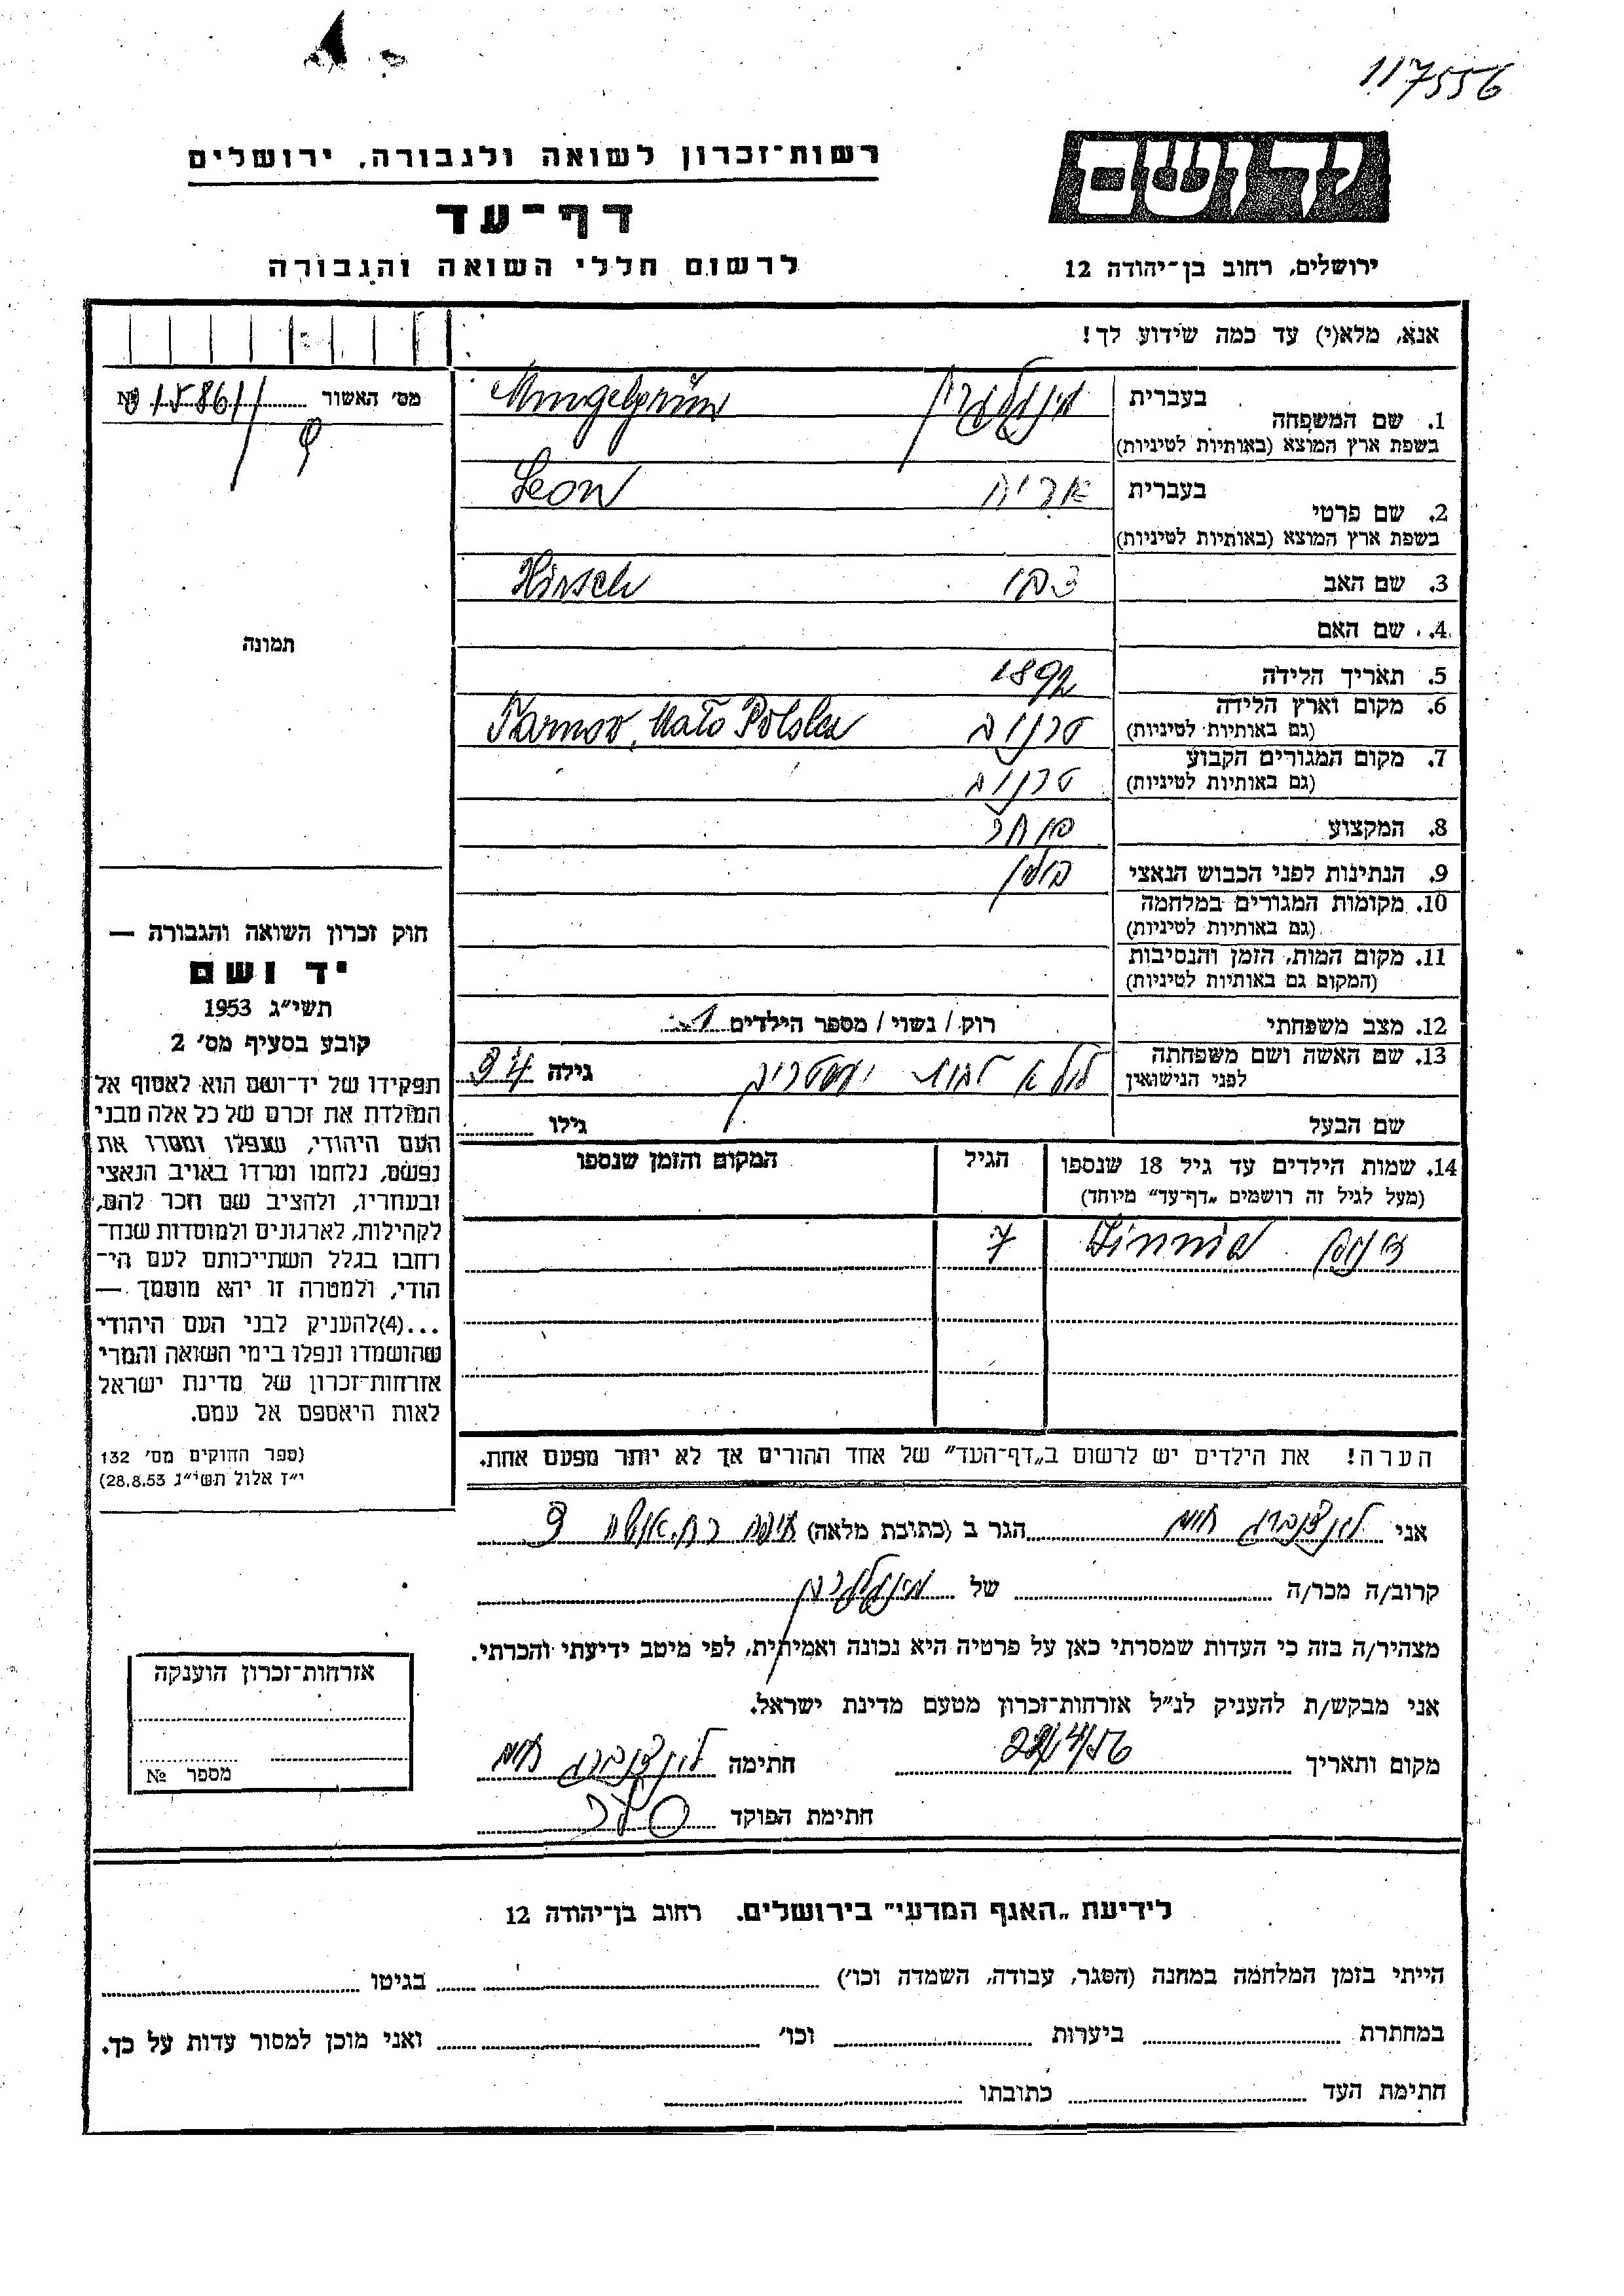 117556
רשות־זכרון לשואה ולגבורה, ירושלים
יד ושם
דף־עד
לרשום חללי השואה והגבורה
ירושלים, רחוב בן־יהודה 12
אנא, מלא(י) עד כמה שידוע לך!
מס' האשור №
1. שם המשפחה
בעברית
Mingelgrün
בשפת ארץ המוצא (באותיות לטיניות)
2. שם פרטי
בעברית אריה Leon
בשפת ארץ המוצא (באותיות לטיניות)
3. שם האב צבי Hirsch
4. שם האם
5. תאריך הלידה 1892
6. מקום וארץ הלידה
(גם באותיות לטיניות) טרנוב Tarnov, Mało Polska
7. מקום המגורים הקבוע
(גם באותיות לטיניות) טרנוב
8. המקצוע סוחר
9. הנתינות לפני הכבוש הנאצי פולין
10. מקומות המגורים במלחמה
(גם באותיות לטיניות)
11. מקום המות, הזמן והנסיבות
(המקום גם באותיות לטיניות)
12. מצב משפחתי רוק / נשוי / מספר הילדים 1
13. שם האשה ושם משפחתה
לפני הנישואין
גילה
שם הבעל גילו
14. שמות הילדים עד גיל 18 שנספו
(מעל לגיל זה רושמים „דף־עד" מיוחד)
הגיל
המקום והזמן שנספו
7
הערה! את הילדים יש לרשום ב„דף־העד" של אחד ההורים אך לא יותר מפעם אחת.
תמונה
חוק זכרון השואה והגבורה —
יד ושם
תשי"ג 1953
קובע בסעיף מס' 2
תפקידו של יד־ושם הוא לאסוף אל
המולדת את זכרם של כל אלה מבני
העם היהודי, שנפלו ומסרו את
נפשם, נלחמו ומרדו באויב הנאצי
ובעוזריו, ולהציב שם וזכר להם,
לקהילות, לארגונים ולמוסדות שנח־
רבו בגלל השתייכותם לעם הי־
הודי, ולמטרה זו יהא מוסמך —
...(4) להעניק לבני העם היהודי
שהושמדו ונפלו בימי השואה והמרי
אזרחות־זכרון של מדינת ישראל
לאות היאספם אל עמם.
(ספר החוקים מס' 132
י"ז אלול תשי"ג 28.8.53)
אני לנצברג חיים הגר ב (כתובת מלאה) חיפה 9
קרוב/ה מכר/ה של
מצהיר/ה בזה כי העדות שמסרתי כאן על פרטיה היא נכונה ואמיתית, לפי מיטב ידיעתי והכרתי.
אני מבקש/ת להעניק לנ"ל אזרחות־זכרון מטעם מדינת ישראל.
מקום ותאריך 22/4/56 חתימה לנצברג חיים
חתימת הפוקד
אזרחות־זכרון הוענקה
מספר №
לידיעת „האגף המדעי" בירושלים. רחוב בן־יהודה 12
הייתי בזמן המלחמה במחנה (הסגר, עבודה, השמדה וכו') בגיטו
במחתרת ביערות וכו' ואני מוכן למסור עדות על כך.
חתימת העד כתובתו